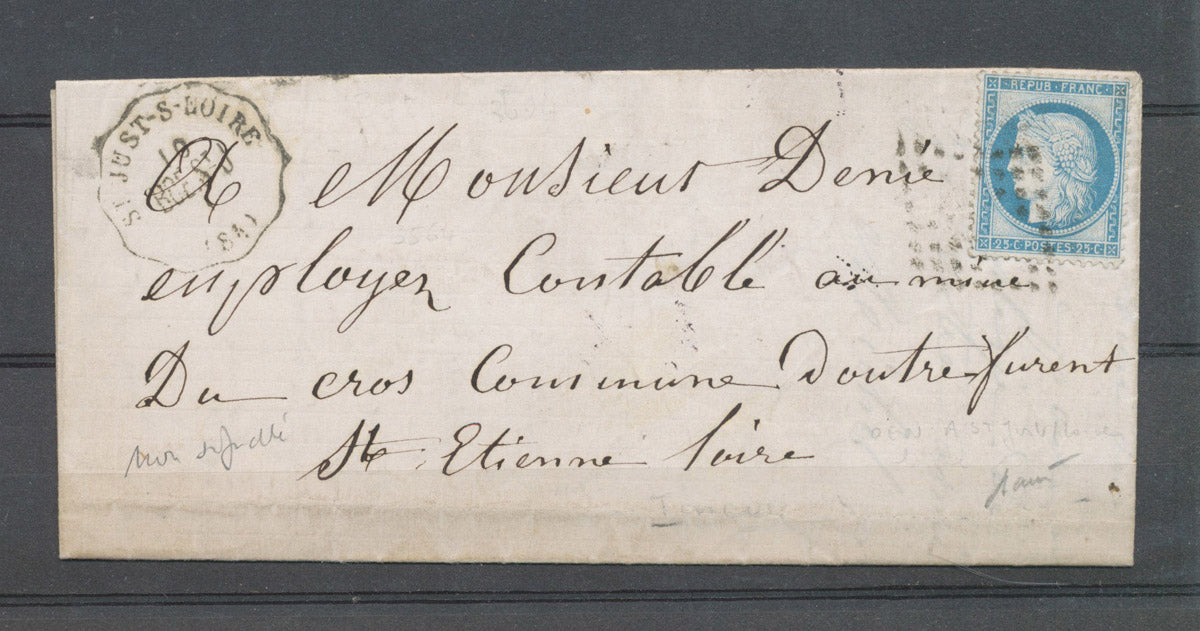 ST JUST-S-LOIRE
(84)
REPUB · FRANC
25·C·POSTES·25·C
A Monsieur Denié
employer Contablé au mine
Du cros Commune Doutre furent
St Etienne Loire